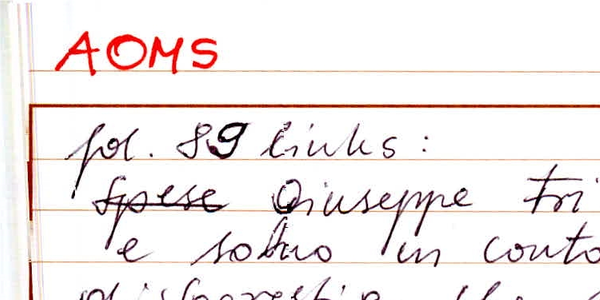 AOMS
fol. 89 links:
Spese Giuseppe Fri
e sobrio in conto